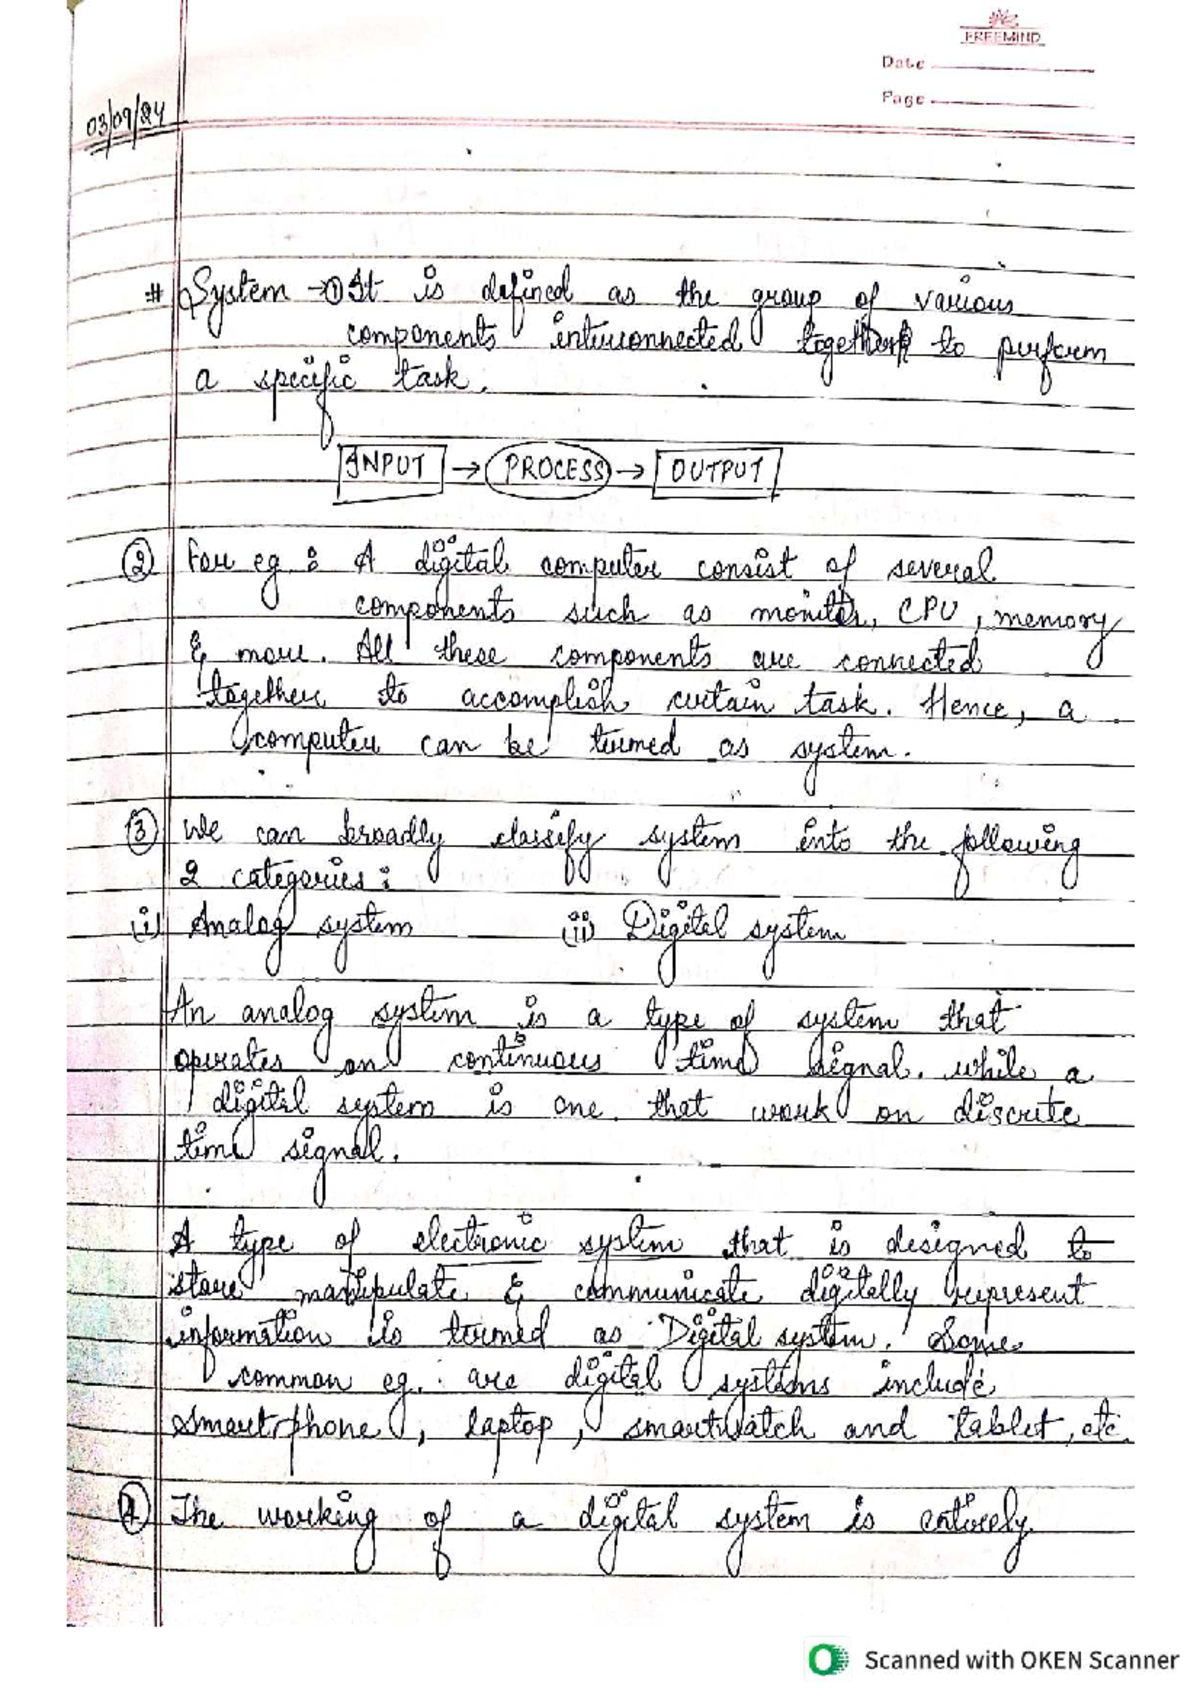 FREEMIND
Date
Page
03/09/24
# System → ① It is defined as the group of various
components interconnected together to perform
a specific task.
INPUT → PROCESS → OUTPUT
② For eg : A digital computer consist of several
components such as monitor, CPU, memory
& more. All these components are connected
together to accomplish certain task. Hence, a
computer can be termed as system.
③ We can broadly classify system into the following
2 categories :
(i) Analog system (ii) Digital system
An analog system is a type of system that
operates on continuous time signal. while a
digital system is one that work on discrete
time signal.
A type of electronic system that is designed to
store manipulate & communicate digitally represent
information is termed as Digital system. Some
common eg. are digital systems include
smartphone, laptop, smartwatch and tablet, etc.
④ The working of a digital system is entirely
Scanned with OKEN Scanner